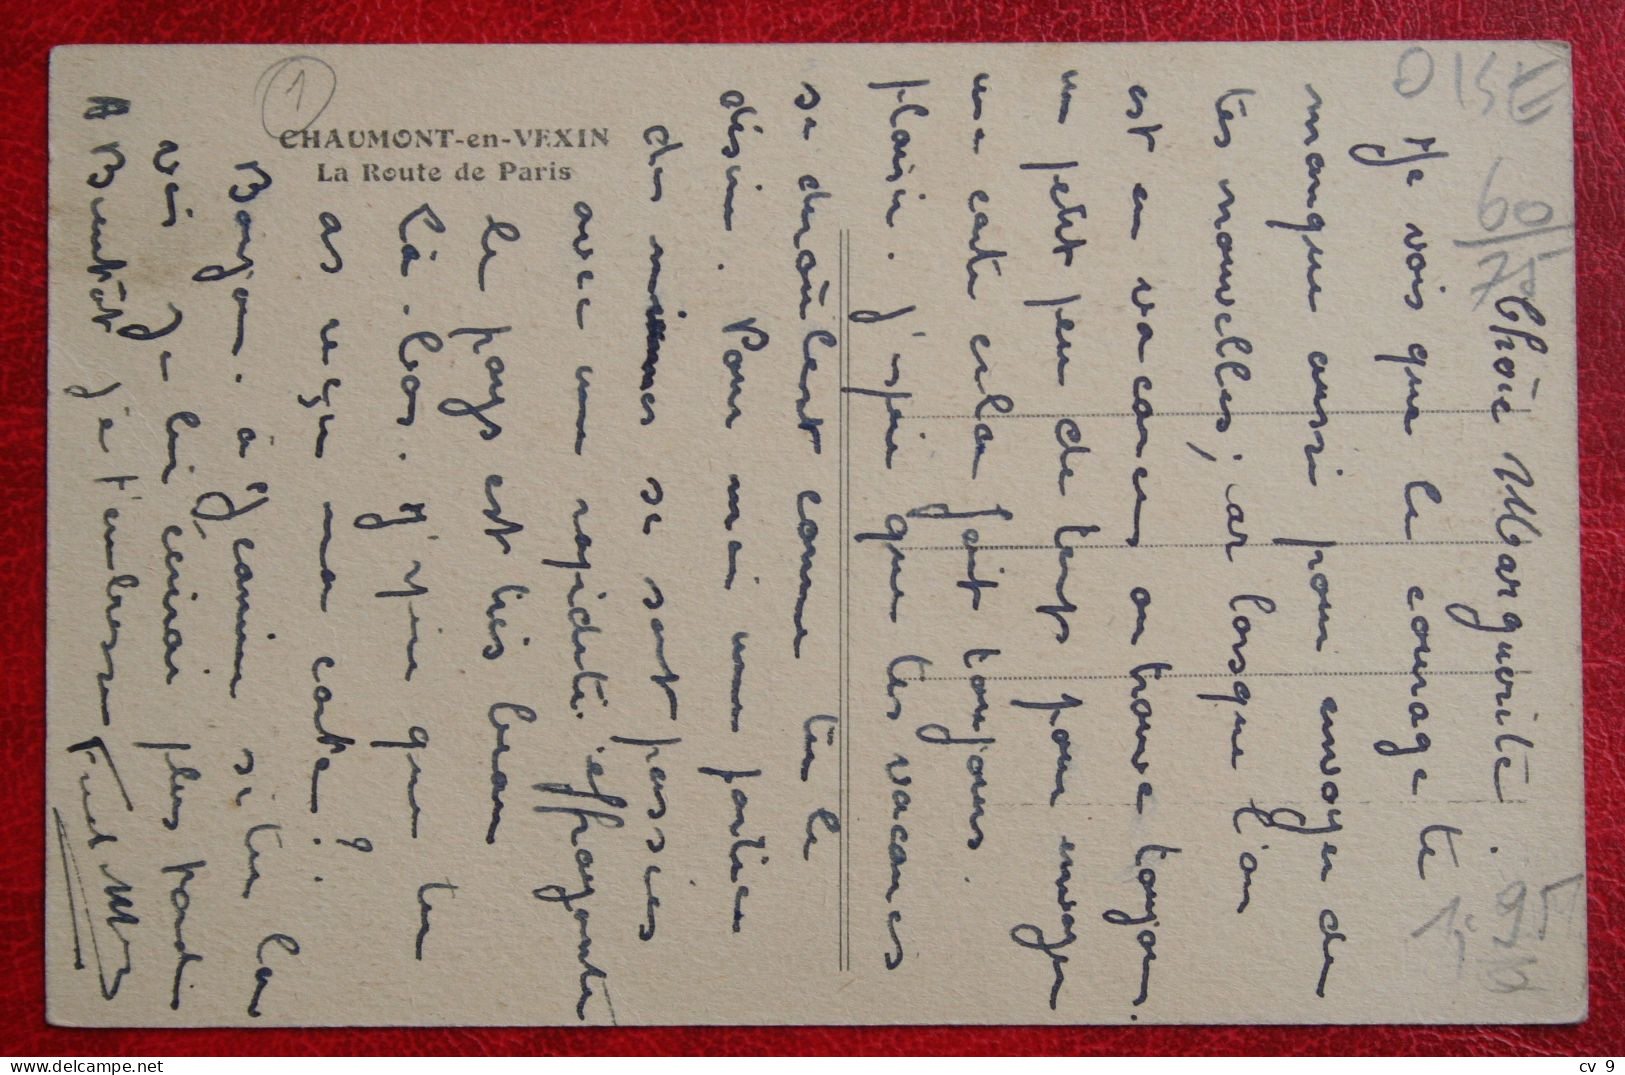 1
CHAUMONT-en-VEXIN
La Route de Paris
Chère Marguerite.
Je vois que le courage te
manque aussi pour envoyer de
tes nouvelles, car lorsque l'on
est en vacances on trouve toujours
un petit peu de temps pour envoyer
une carte cela fait toujours
plaisir. J'espère que tes vacances
se déroulent comme tu le
désires. Pour moi une partie
des miennes se sont passées
avec une rapidité effrayante
le pays est très beau
là-bas. J'espère que tu
as reçu ma carte?
Bonjour à Jeannine si tu la
vois je lui écrirai plus tard
A Bientôt je t'embrasse
cv 9